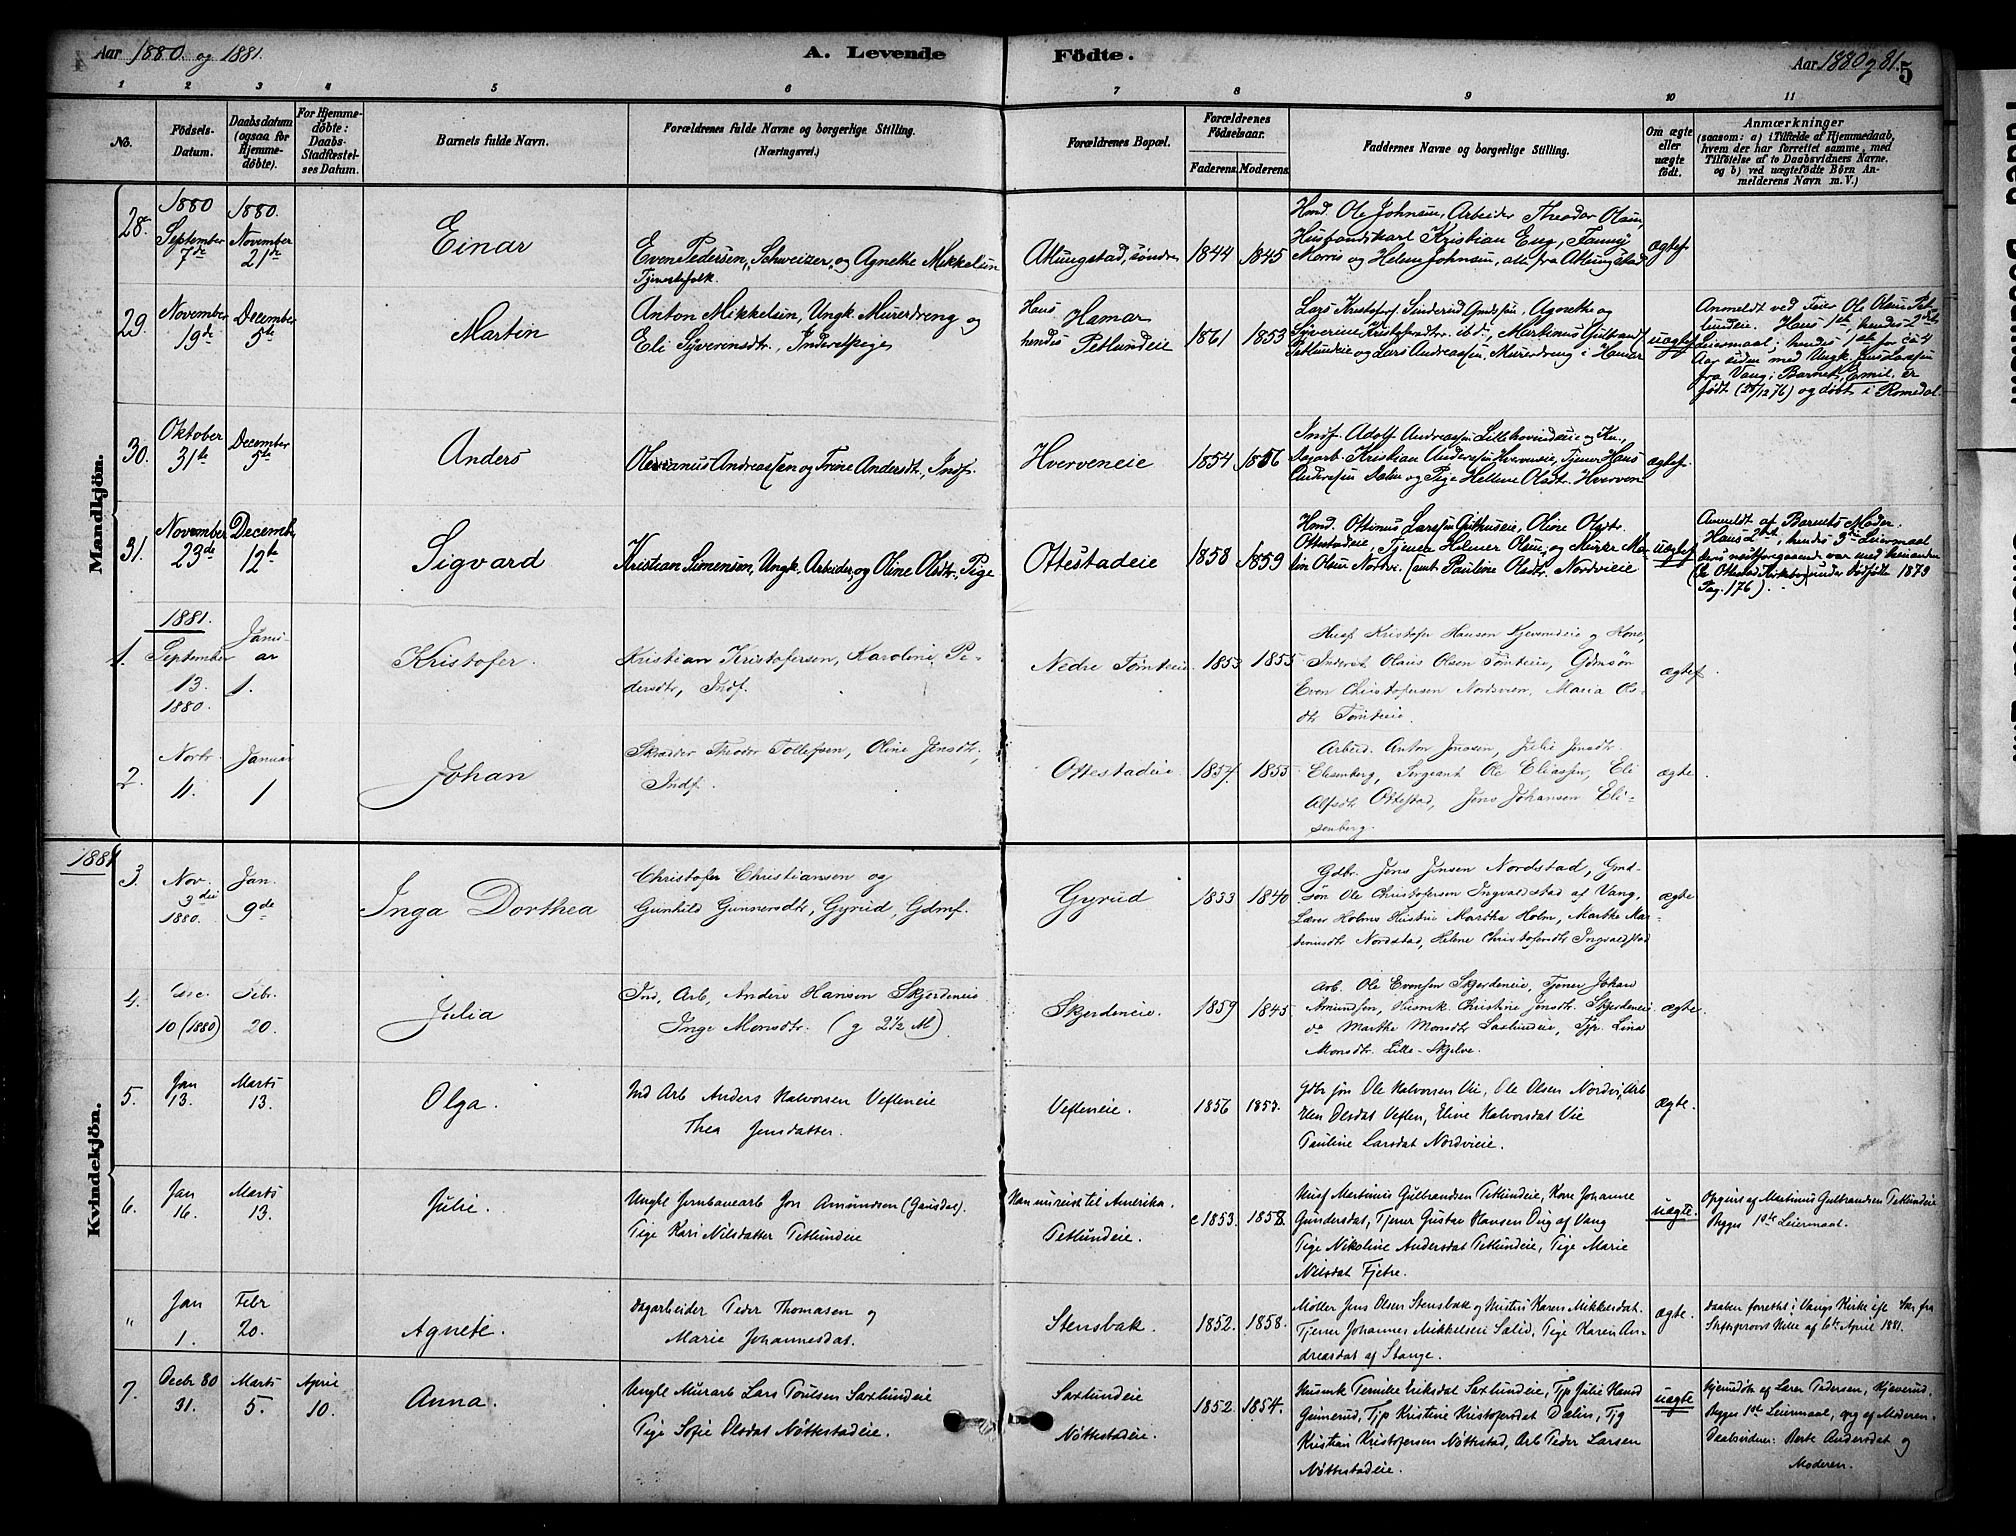 Aar 1880 og 1881. A. Levende Födte. Aar 1880 og 81. 5
1 2 3 4 5 6 7 8 9 10 11
No.
Födsels-Datum.
Daabsdatum (ogsaa for Hjemmedöbte).
For Hjemmedöbte: Daabs-Stadfæstelses Datum.
Barnets fulde Navn.
Forældrenes fulde Navne og borgerlige Stilling.
(Næringsvei.)
Forældrenes Bopæl.
Forældrenes Födselsaar.
Faderens. Moderens.
Faddernes Navne og borgerlige Stilling.
Om ægte eller uægte födt.
Anmærkninger
(saasom: a) i Tilfælde af Hjemmedaab, hvem der har forrettet samme, med Tilföielse af to Daabsvidners Navne. og b) ved uægtefödte Börn Anmelderens Navn m. V.)
Mandkjön.
28. 1880 September 7de
1880. November 21de
Einar
Even Pedersen, Schweizer, og Agnethe Mikkelsen
Tjenestefolk.
Attungstad, söndre
1844 1845
Hmd. Ole Johnsen, Arbeider Theodor Olsen,
Husbondskarl Kristian Eng, Fanny
Morris og Helene Johnsen, alle fra Attungstad
ægtef.
29. November 19de
December 5te
Martin
Anton Mikkelsen, Ungk. Murerdreng og
Eli Syverensdtr., Inderstpige
Hans Hamar
hendes Petlundeie
1861 1853
Lars Kristofers. Sinderud Gmdsön, Agnethe og
Syverine Kristofersdtr. ibd., Martinus Gulbrands.
Petlundeie og Lars Andreassen, Murerdreng i Hamar
uægtef.
Anmeldt ved Feier Ole Olsen Pet-
lundeie. Hans 1ste, hendes 2det
Leiermaal; hendes 1ste for ca 4
Aar siden med Ungk. Jens Larsen
fra Vang; Barnet, Emil, er
födt (28/12 76) og döbt i Romedal.
30. Oktober 31te
December 5te
Anders
Olevianus Andreassen og Trine Andersdtr., Indf.
Hverveneie
1854 1856
Indf. Adolf Andreassen Lillehovindeie og Ku.,
Dagarb. Kristian Andersen Hverveneie, Tjener Hans
Anderssen Dalen og Pige Hellene Olsdtr. Hverven
ægtef.
31. November 23de
December 12te
Sigvard
Kristian Simensen, Ungk. Arbeider, og Oline Olsdtr., Pige
Ottestadeie
1858 1859
Hmd. Ottinus Larssen Guthuseie, Oline Olsdtr.
Ottestadeie, Tjener Helmer Olsen, og Murer Mar-
tin Olsen Nordvi. samt Pauline Olsdtr. Nordvieie
uægtef.
Anmeldt af Barnets Moder.
Hans 2det, hendes 3die Leiermaal
deres næstforegaaende var med hinanden
(se Ottestad Kirkebog under Dødfødte 1879
Pag. 176).
1881.
1. September 13. 1880.
Januar 1.
Kristofer.
Kristian Kristofersen, Karoline Pe-
dersdtr, Indf.
Nedre Tömteeie.
1853 1855
Husf Kristofer Hansen Kjevendeie og Kone,
Inderst Olaus Olsen Tömteeie, Gdmsön
Even Christofersen Nordvien, Maria Ols-
dtr Tömteeie.
ægtef.
2. Novbr. 11.
Januar 1
Johan
Skrædder Theodor Tollefsen, Oline Jensdtr.,
Indf.
Ottestadeie.
1857. 1855
Arbeid. Anton Jensen, Julie Jensdtr.
Elisenberg, Sergeant Ole Eliassen, Eli
Alfsdtr Ottestad, Jens Johansen Eli-
senberg.
ægte
Kvindekjön.
1881
3. Nov. 3die 1880.
Jan. 9de
Inga Dorthea
Christofer Christiansen og
Gunhild Gunnersdtr, Gyrud, Gdmf.
Gyrud
1833 1840
Gdbr. Jens Jensen Nordstad, Gmd-
sön Ole Christofersen Ingvaldstad af Vang,
Lærer Holms Hustrue Martha Holm, Marthe Mar-
tinusdtr Nordstad, Helene Christofersdtr Ingvaldstad
ægte
4. Dec. 10 (1880)
Febr. 20.
Julia
Ind, Arb, Anders Hansen Skjerdeneie.
Inge Monsdtr. (g 2½ M).
Skjerdeneie.
1859 1845
Arb. Ole Evensen Skjerdeneie, Tjener Johan
Amundsen, Husmk Christine Jensdtr. Skjerdeneie
do Marthe Monsdtr Saxlundeie, Tjp. Lina
Monsdtr. Lille-Skjelve.
ægte
5. Jan 13.
Marts 13.
Olga.
Ind Arb Anders Halvorsen Vefleneie
Thea Jensdatter.
Vefleneie.
1856 1853.
Gdbr sön Ole Halvorsen Vie, Ole Olsen Nordvi, Arb
Elen Olsdat Veflen, Eline Halvorsdat Vie
Pauline Larsdat Nordvieie.
ægte.
6. Jan 16.
Marts 13.
Julie.
Ungkl Jernbanearb Jon Amundsen (Gausdal)
Pige Kari Nilsdatter Petlundeie
Han udreist til Amerika.
Petlundeie.
c 1853. 1858.
Husf Martinus Gulbrandsen Petlundeie, Kone Johanne
Gundersdat, Tjener Gustav Hansen Dug af Vang
Pige Nikoline Andersdat Petlundeie, Pige Marie
Nilsdat Fjetre.
uægte.
Opgivs af Martinus Gulbrandsen Petlundeie
Bgges 1ste Leiermaal.
" Jan 1.
Febr 20.
Agnete.
Dagarbeider Peder Thomasen og
Marie Johannesdat.
Stensbak.
1852. 1858.
Møller Jens Olsen Stensbak og Hustru Karen Mikkelsdat.
Tjener Johannes Mikkelsen Salid, Pige Karen An-
dreasdat af Stange.
ægte.
Daaben forrettet i Vangs Kirke
Stiftsprovst af 6te April 1881.
7. Decbr 80 31.
Marts 5.
April 10.
Anna.
Ungkl Murarb Lars Poulsen Saxlundeie
Pige Sofie Olsdat Nøttestadeie.
Saxlundeie
Nøttestadeie.
1852. 1854.
Husmk Pernike Eriksdat Saxlundeie, Tjp Julie Hansd
Gunnerud, Tjp Kristine Kristofersdat Dalin, Tjg
Kristian Kristofersen Nøttestad, Arb Peder Larsen
Nøttestadeie.
uægte
Hjemdöbt af Lærer Pedersen, Kjæverud.
Bgges 1ste Leiermaal, opg af Moderen.
Daabsvidner: Berte Andersdat og
Moderen.